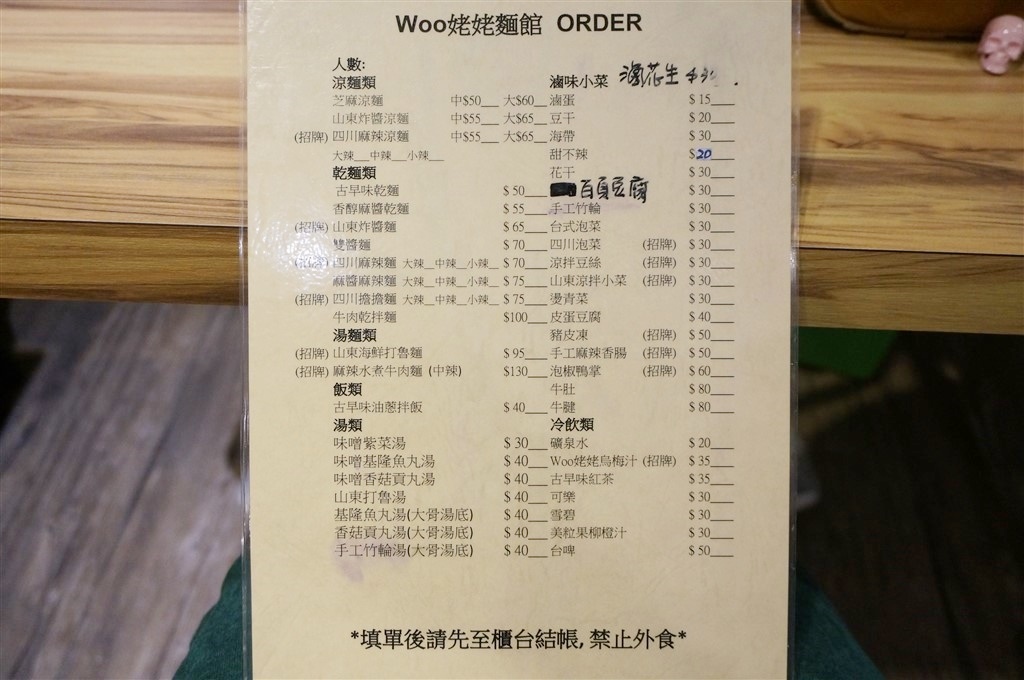 Woo姥姥麵館 ORDER
人數:
涼麵類
芝麻涼麵 中$50__ 大$60__
山東炸醬涼麵 中$55__ 大$65__
(招牌) 四川麻辣涼麵 中$55__ 大$65__
大辣__中辣__小辣__
乾麵類
古早味乾麵 $ 50__
香醇麻醬乾麵 $ 55__
(招牌) 山東炸醬麵 $ 65__
雙醬麵 $ 70__
(招牌) 四川麻辣麵 大辣__中辣__小辣__ $ 70__
麻醬麻辣麵 大辣__中辣__小辣__ $ 75__
(招牌) 四川擔擔麵 大辣__中辣__小辣__ $ 75__
牛肉乾拌麵 $100__
湯麵類
(招牌) 山東海鮮打魯麵 $ 95__
(招牌) 麻辣水煮牛肉麵 (中辣) $130__
飯類
古早味油蔥拌飯 $ 40__
湯類
味噌紫菜湯 $ 30__
味噌基隆魚丸湯 $ 40__
味噌香菇貢丸湯 $ 40__
山東打魯湯 $ 40__
基隆魚丸湯(大骨湯底) $ 40__
香菇貢丸湯(大骨湯底) $ 40__
手工竹輪湯(大骨湯底) $ 40__
滷味小菜 滷花生
滷蛋 $ 15__
豆干 $ 20__
海帶 $ 30__
甜不辣 $ 20__
花干 $ 30__
百頁豆腐 $ 30__
手工竹輪 $ 30__
台式泡菜 $ 30__
四川泡菜 (招牌) $ 30__
涼拌豆絲 (招牌) $ 30__
山東涼拌小菜 (招牌) $ 30__
燙青菜 $ 30__
皮蛋豆腐 $ 40__
豬皮凍 (招牌) $ 50__
手工麻辣香腸 (招牌) $ 50__
泡椒鴨掌 (招牌) $ 60__
牛肚 $ 80__
牛腱 $ 80__
冷飲類
礦泉水 $ 20__
Woo姥姥烏梅汁 (招牌) $ 35__
古早味紅茶 $ 35__
可樂 $ 30__
雪碧 $ 30__
美粒果柳橙汁 $ 30__
台啤 $ 50__
*填單後請先至櫃台結帳, 禁止外食*